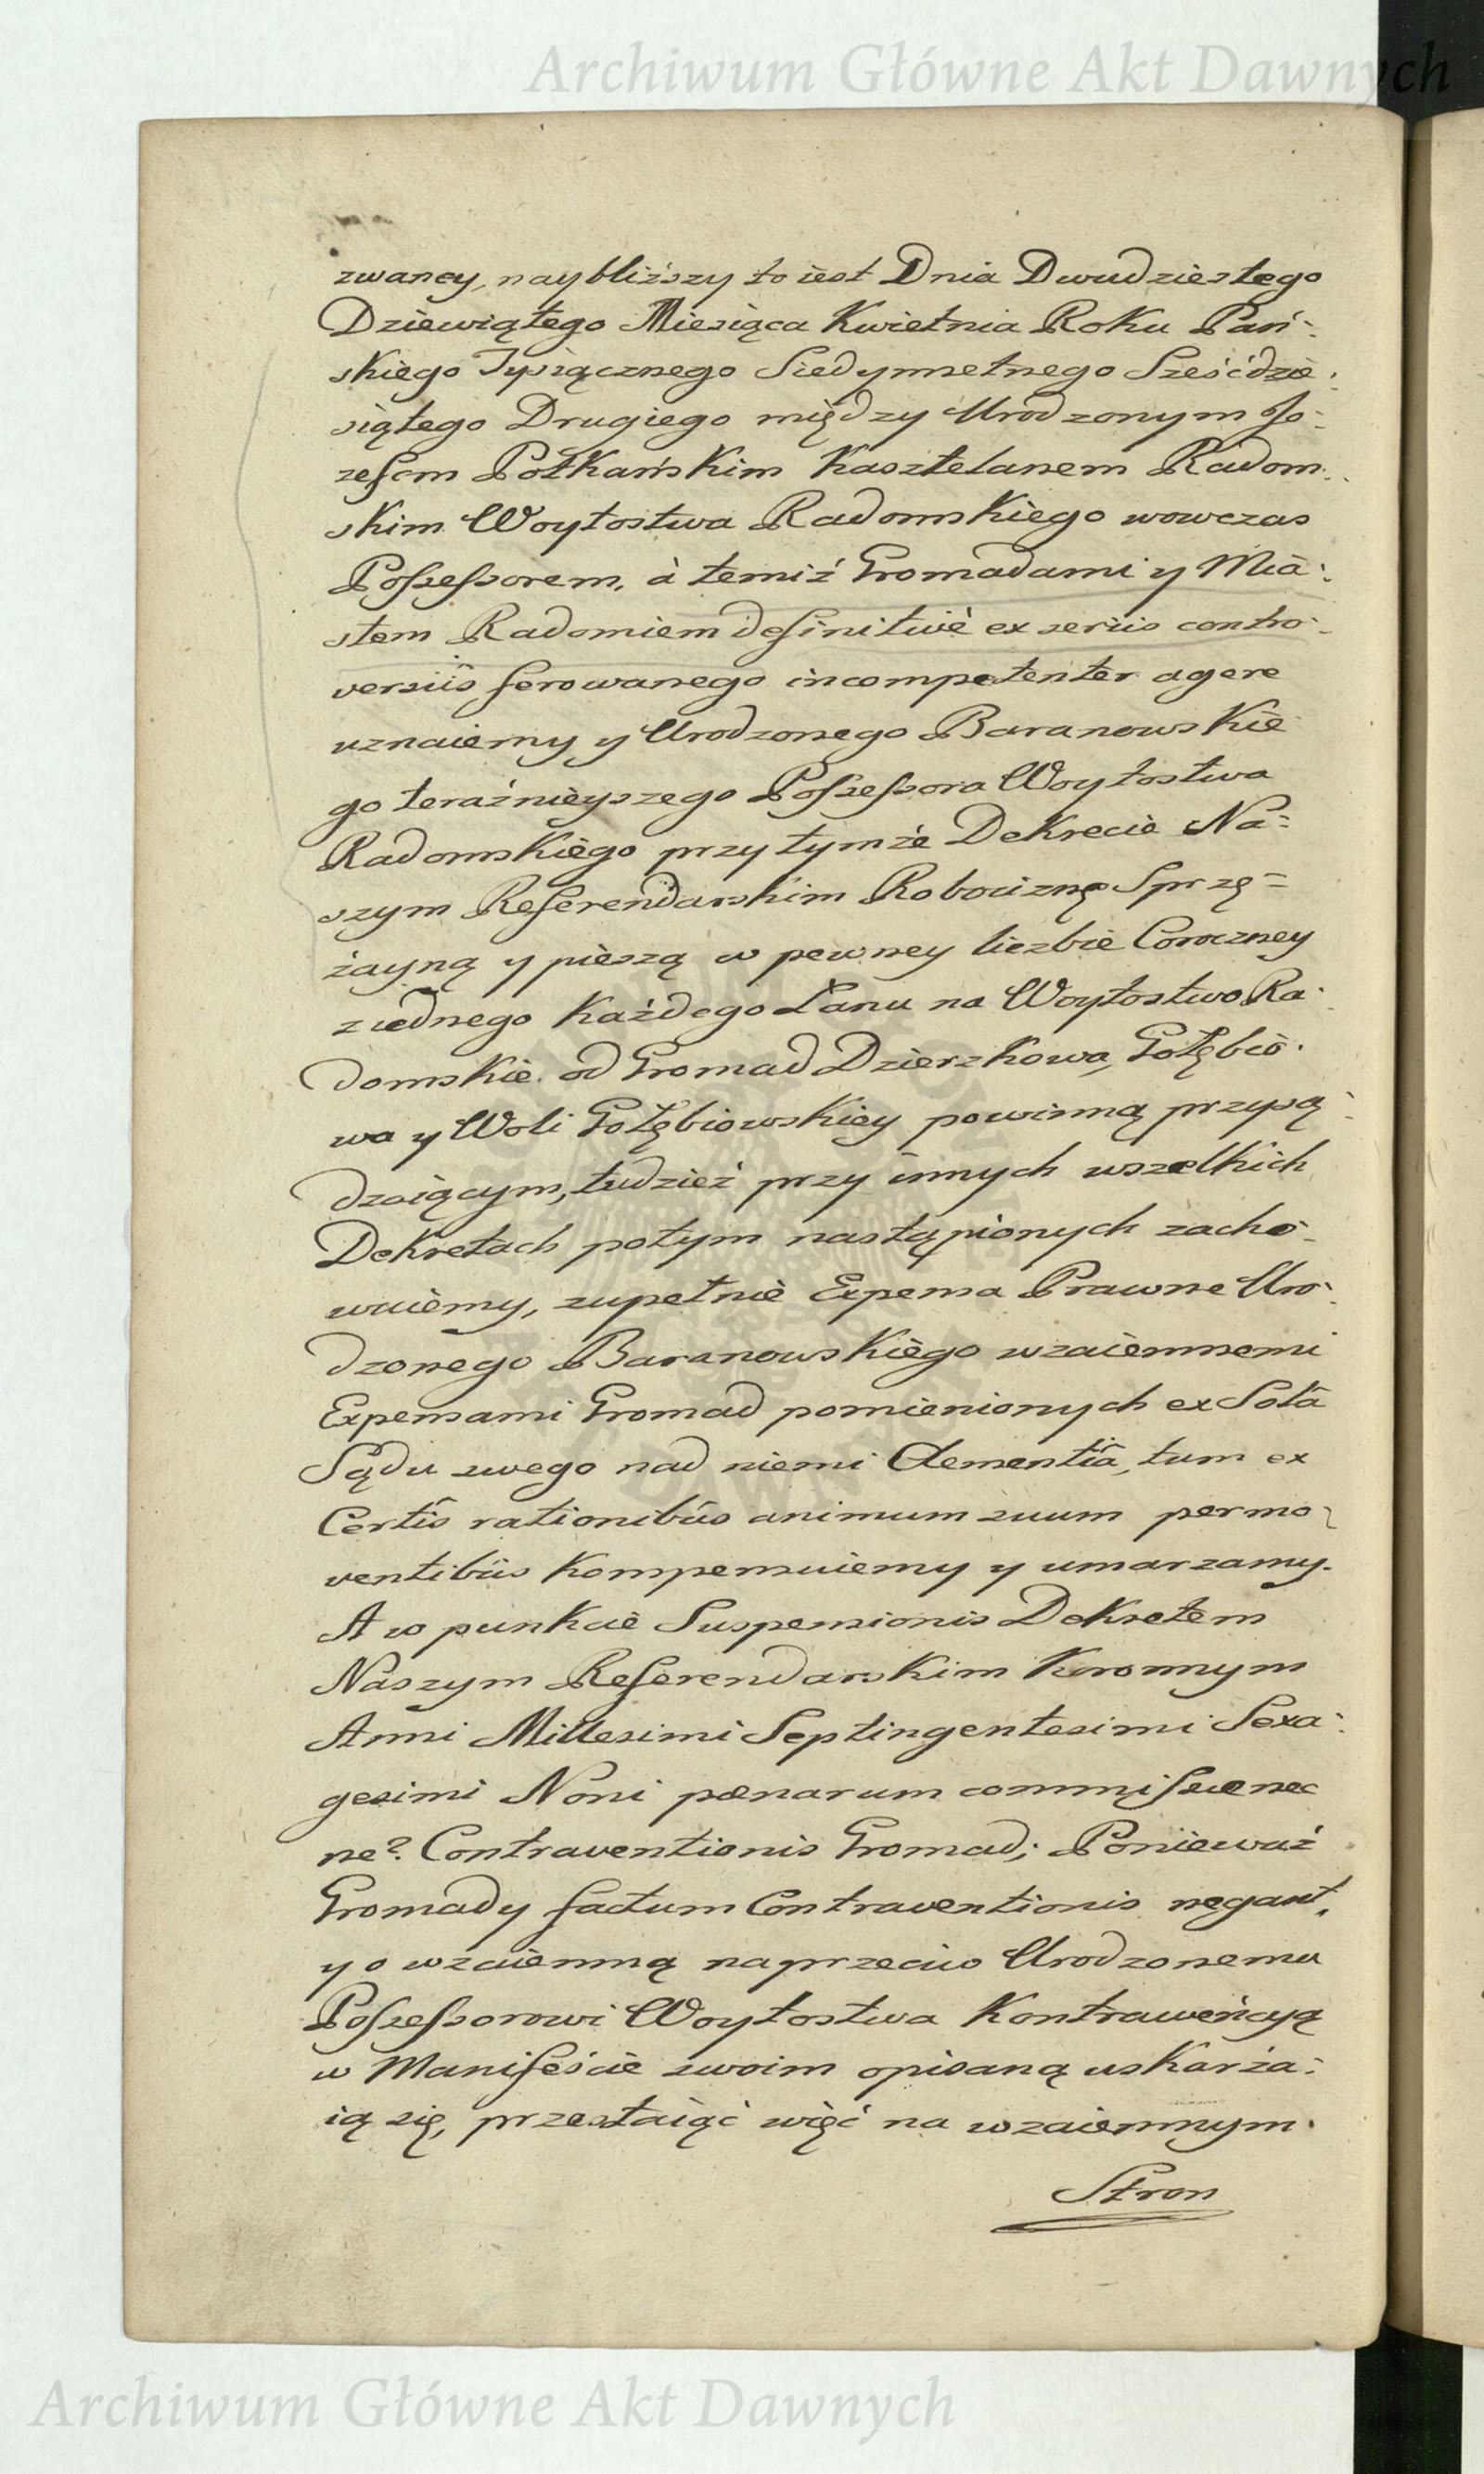 Archiwum Główne Akt Dawnych
zwaney, naybliższy to iest Dnia Dwudziestego
Dziewiątego Miesiąca Kwietnia Roku Pań-
skiego Tysiącznego Siedymsetnego Sześćdzie-
siątego Drugiego między Urodzonym Jo-
zefem Potkańskim Kasztelanem Radom-
skim Woytostwa Radomskiego wowczas
Possessorem, à temiż Gromadami y Mia-
stem Radomiem definitivè ex seriis contro-
versiis ferowanego incompetenter agere
uznaiemy y Urodzonego Baranowskie
go teraźnieyszego Possessora Woytostwa
Radomskiego przy tymże Dekrecie Na-
szym Referendarskim Robociznę Sprzę-
żayną y pieszą w pewney liczbie Coroczney
z iednego każdego Łanu na Woytostwo Ra-
domskie od Gromad Dzierzkowa, Gołębio-
wa y Woli Gołębiowskiey powinną przysą-
dzaiącym, tudzież przy innych wszelkich
Dekretach potym nastąpionych zacho-
wuiemy, zupełnie Expensa Prawne Uro-
dzonego Baranowskiego wzaiemnemi
Expensami Gromad pomienionych ex Sola
Sądu swego nad niemi Clementiâ, tum ex
Certîs rationibûs animum suum permo-
ventibus kompensuiemy y umarzamy.
A w punkcie Suspensionis Dekretem
Naszym Referendarskim Koronnym
Anni Millesimi Septingentesimi Sexa-
gesimi Noni pœnarum commissæ nec
ne? Contraventionis Gromad; Ponieważ
Gromady factum Contraventionis negant,
y o wzaiemną naprzeciw Urodzonemu
Possessorowi Woytostwa Kontrawencyą
w Manifeście swoim opisaną uskarża-
ią się, przestaiąć więć na wzaiemnym
Stron
Archiwum Główne Akt Dawnych